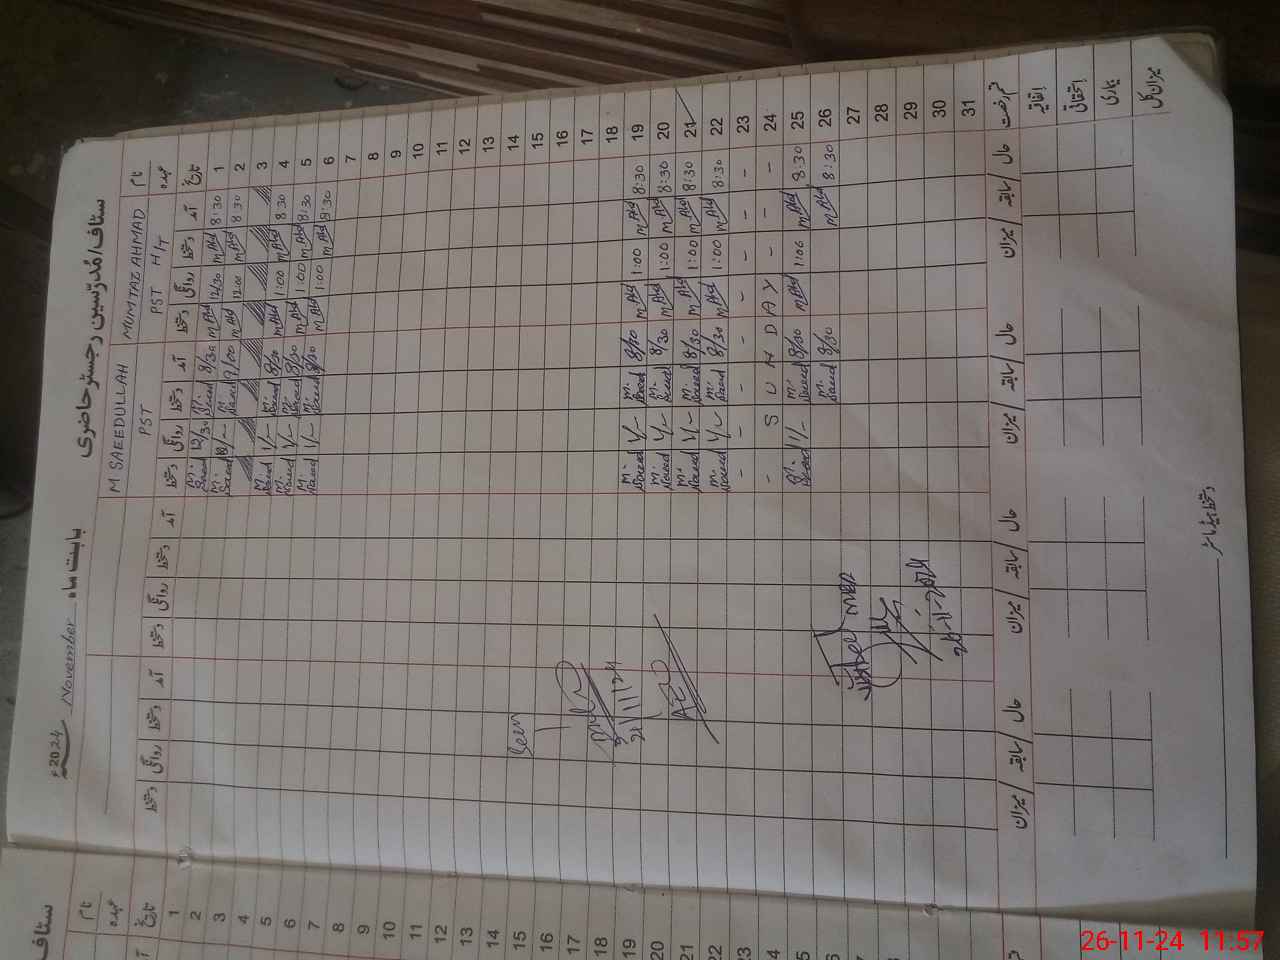 ستاف/مُدرّسین رجسٹر حاضری
بابت ماہ November ء2024
نام MUMTAZ AHMAD M SAEEDULLAH
عہدہ PST H/T PST
تاریخ آمد دستخط روانگی دستخط آمد دستخط روانگی دستخط آمد دستخط روانگی دستخط آمد دستخط روانگی دستخط
1 8:30 M Ahd 12/30 M Ahd 8/30 M. Saeed 12/30 M. Saeed
2 8:30 M Ahd 12:00 M Ahd 9/00 M. Saeed M. Saeed
3
4 8:30 M Ahd 1:00 M Ahd 8/30 M. Saeed 1/- M. Saeed
5 8:30 M Ahd 1:00 M Ahd 8/30 M. Saeed 1/- M. Saeed
6 8:30 M Ahd 1:00 M Ahd 8/30 M. Saeed 1/- M. Saeed
7
8
9
10
11
12
13
14
15
16
17
18
19 8:30 M Ahd 1:00 M Ahd 8/30 M. Saeed 1/- M. Saeed
20 8:30 M Ahd 1:00 M Ahd 8/30 M. Saeed 1/- M. Saeed
21 8:30 M Ahd 1:00 M Ahd 8/30 M. Saeed 1/- M. Saeed
22 8:30 M Ahd 1:00 M Ahd 8/30 M. Saeed 1/- M. Saeed
23 - - - - - - - -
24 - - - Y A D N U S -
25 8:30 M Ahd 1:00 M Ahd 8/30 M. Saeed 1/- M. Saeed
26 8:30 M Ahd 8/30 M. Saeed
27
28
29
30
31
Seen
21/11/24
AEO
26-11-2024
قسم رخصت حال سابقہ میزان حال سابقہ میزان حال سابقہ میزان حال سابقہ میزان
اتفاقیہ
استحقاقی
بیماری
میزان کل
دستخط ہیڈ ماسٹر
ستاف
نام
عہدہ
تاریخ
1
2
3
4
5
6
7
8
9
10
11
12
13
14
15
16
17
18
19
20
21
22
23
24
25
26-11-24 11:57